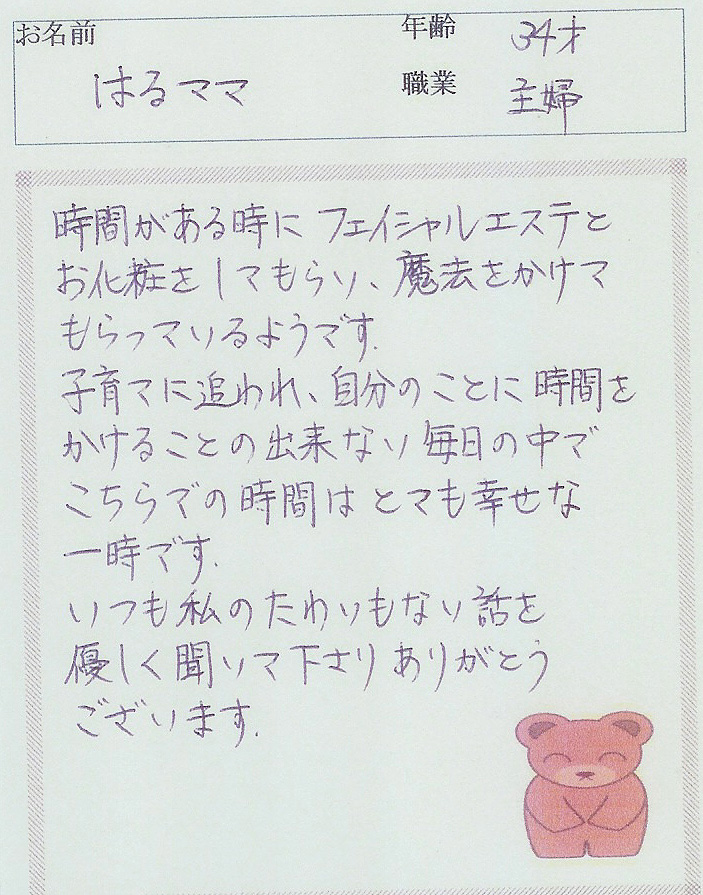 お名前 はるママ
年齢 34才
職業 主婦
時間がある時に フェイシャルエステと
お化粧をしてもらい、魔法をかけて
もらっているようです.
子育てに追われ、自分のことに時間を
かけることの出来ない毎日の中で
こちらでの時間はとても幸せな
一時です.
いつも私のたわいもない話を
優しく聞いて下さり ありがとう
ございます.